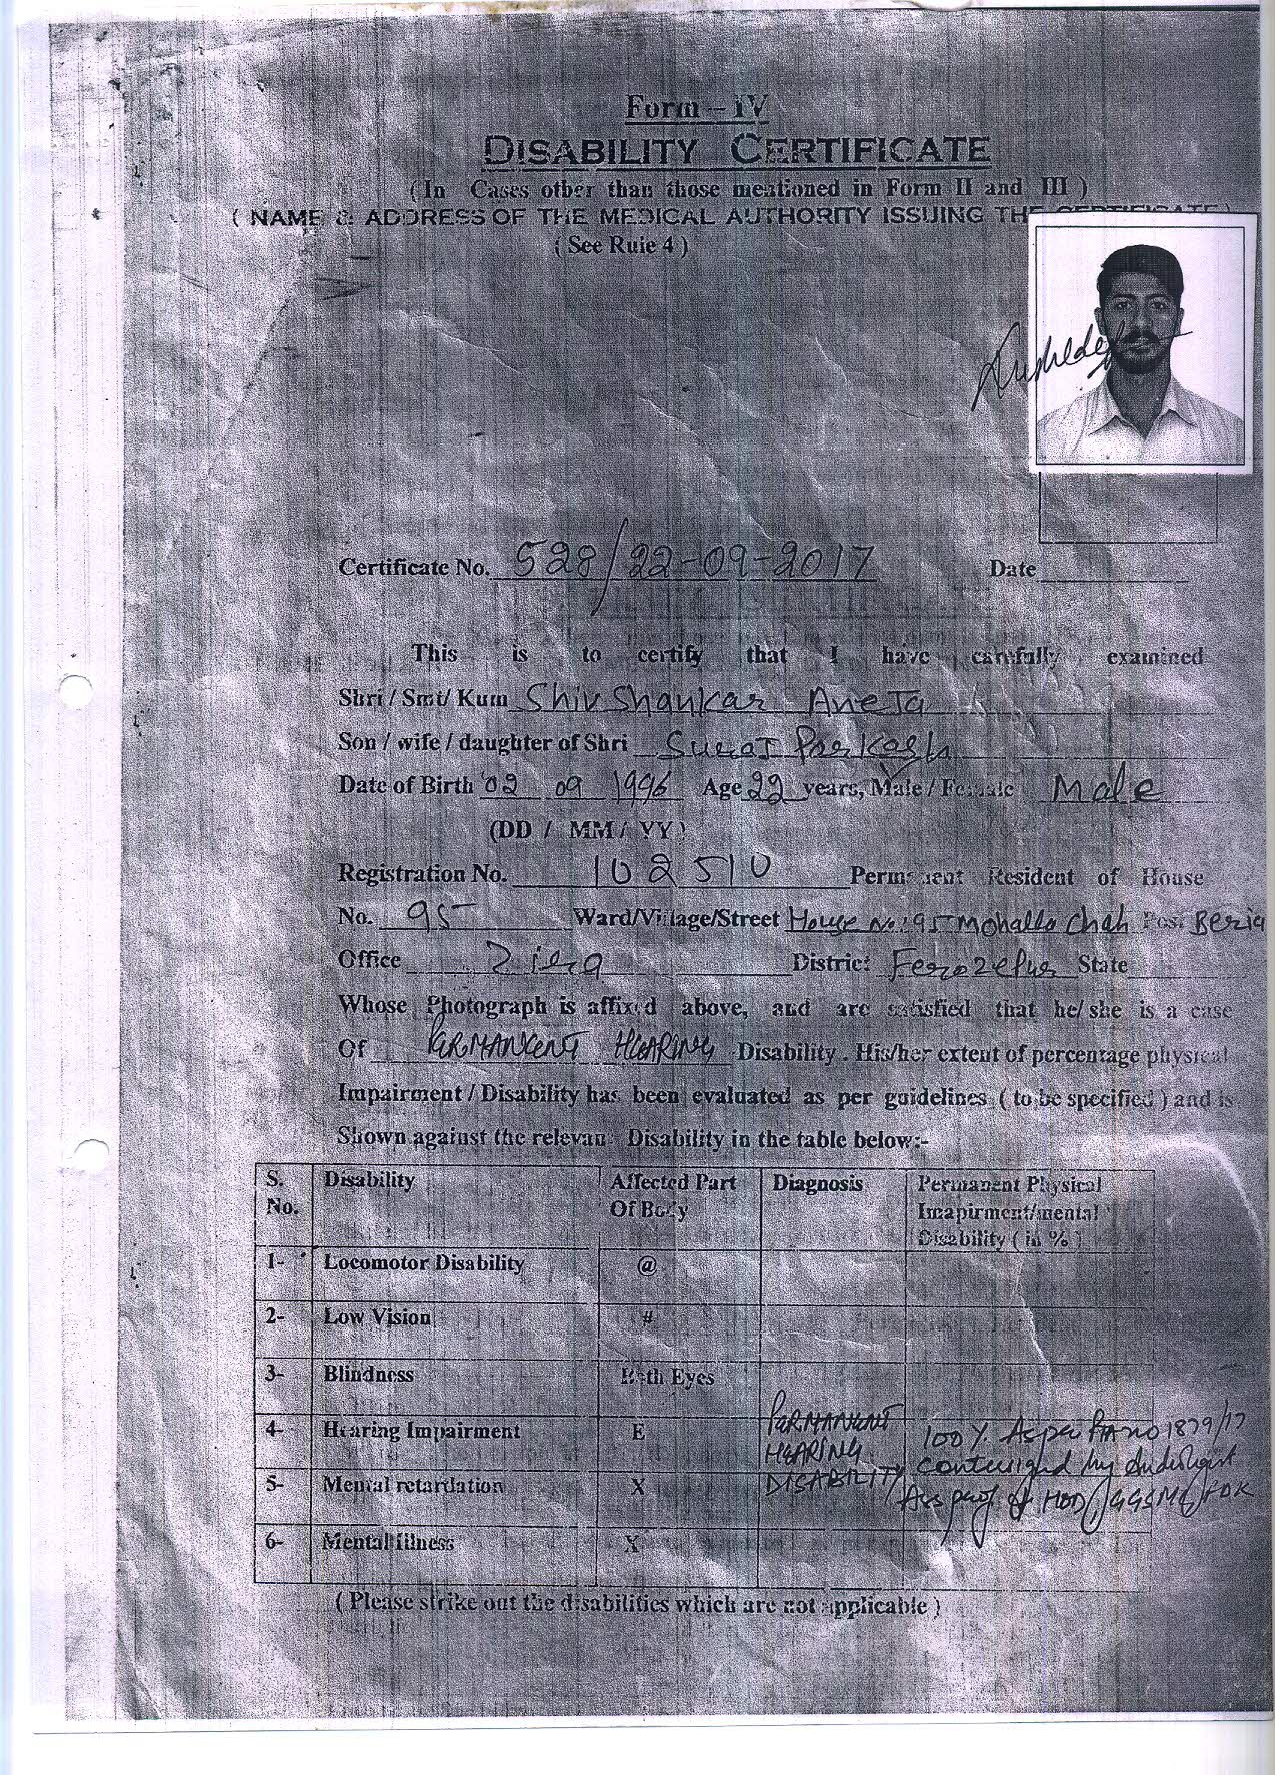 Form – IV
DISABILITY CERTIFICATE
( In Cases other than those mentioned in Form II and III )
( NAME & ADDRESS OF THE MEDICAL AUTHORITY ISSUING THE CERTIFICATE )
( See Rule 4 )
Certificate No. 528/22-09-2017 Date
This is to certify that I have carefully examined
Shri / Smt/ Kum Shiv Shankar Aneja
Son / wife / daughter of Shri Suraj Parkash
Date of Birth 02 09 1996 Age 22 years, Male / Female Male
(DD / MM / YY )
Registration No. 102510 Permanent Resident of House
No. 95 Ward/Village/Street House No. 95 Mohalla Chah Post Beria
Office Zira District Ferozepur State
Whose Photograph is affixed above, and are satisfied that he/ she is a case
Of PERMANENT HEARING Disability . His/her extent of percentage physical
Impairment / Disability has been evaluated as per guidelines ( to be specified ) and is
Shown against the relevant Disability in the table below:-
S. No. Disability Affected Part Of Body Diagnosis Permanent Physical Imapirment/mental Disability ( in % )
1- Locomotor Disability @
2- Low Vision #
3- Blindness Both Eyes
4- Hearing Impairment E PERMANENT HEARING DISABILITY 100 % As per PTA no 1879/17
5- Mental retardation X
6- Mental illness X
( Please strike out the disabilities which are not applicable )